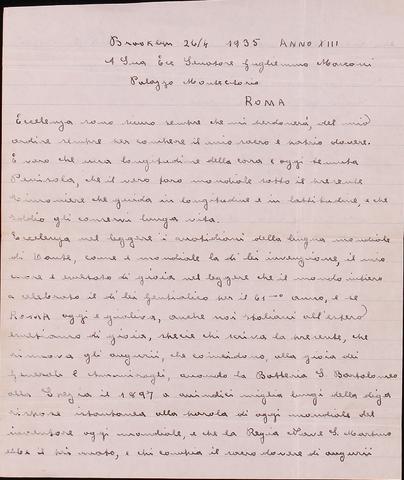 Brooklyn 26/4 1935 ANNO XIII
A Sua Ecc Senatore Guglielmo Marconi
Palazzo Montecitorio
ROMA
Eccellenza sono sicuro sempre che mi perdonerà, del mio
ardire sempre per compiere il mio sacro e patrio dovere.
È raro che una longitudine della cara e oggi temuta
Penisola, che il vero faro mondiale sotto il presente
che guida in longitudine e in latitudine, e che
Iddio gli conservi lunga vita.
Eccellenza nel leggere i quotidiani della lingua mondiale
di Dante, come è mondiale la di lei invenzione, il mio
cuore è esultato di gioia nel leggere che il mondo intiero
a celebrato il di lei Genetliaco per il 61mo anno, e se
ROMA oggi è gioliva, anche noi italiani all'estero
esultiamo di gioia, specie chi scriva la presente, che
rinnova gli augurii, che coincidono, alla gioia dei
Generali E Ammiragli, quando la Batteria S. Bartolomeo
alla Spezia il 1897 a quindici miglia lungi della diga
rispose istantanea alla parola di oggi mondiale del
inventore oggi mondiale, e che la Regia Nave S. Martino
ebbe il più, e chi compia il sacro dovere di augurii